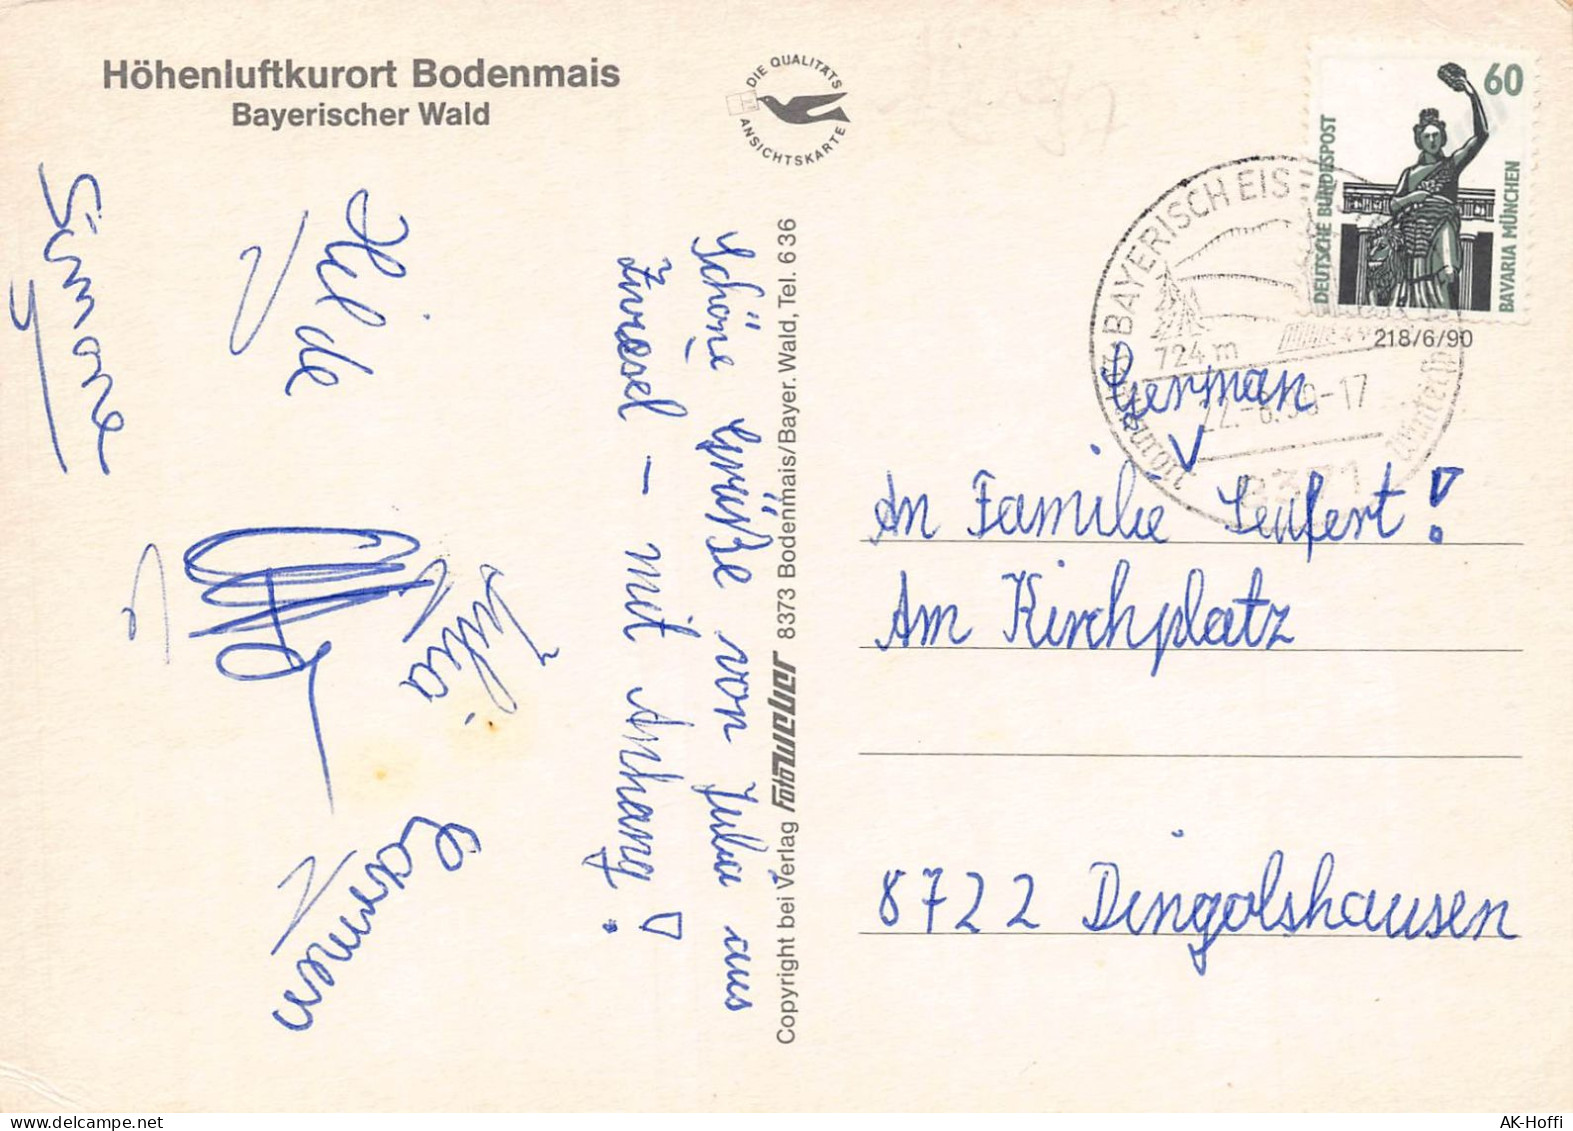 Höhenluftkurort Bodenmais
Bayerischer Wald
DIE QUALITÄTS
ANSICHTSKARTE
Simone
Hilde
Julia
Carmen
Schöne Grüße von Julia aus
Zwiesel - mit Anhang!
Copyright bei Verlag Foto Weber 8373 Bodenmais/Bayer. Wald, Tel. 636
60
DEUTSCHE BUNDESPOST
BAVARIA MÜNCHEN
BAYERISCH EIS
724 m
-17
8371
218/6/90
German
An Familie Seufert!
Am Kirchplatz
8722 Dingolshausen
AK-Hoffi